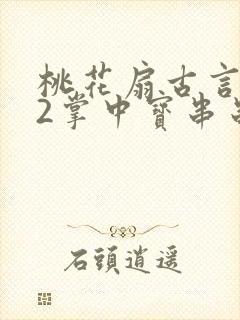 桃花扇古言
2掌中寶串
石頭逍遥